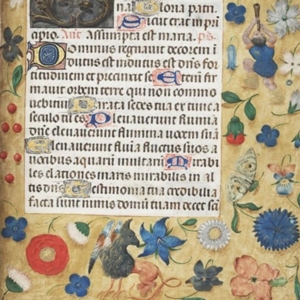 na Gloria patri.
Sicut erat in pri
cipio. Ant Assumpta est maria. ps
Dominus regnauit decorem i
dutus est indutus est dñs for
titudinem et precinxit se Eteni fir
mauit orbem terre qui non commo
uebitur Parata sedes tua ex tunc a
seculo tu es Eleuauerunt flumina
dñe eleuauerunt flumina uocem sua
Eleuauerunt flumina fluctus suos a
uocibus aquarū multarū Mirabi
les elationes maris mirabilis in al
tis dñs Testimonia tua credibilia
facta sunt nimis domū tuam decet sci